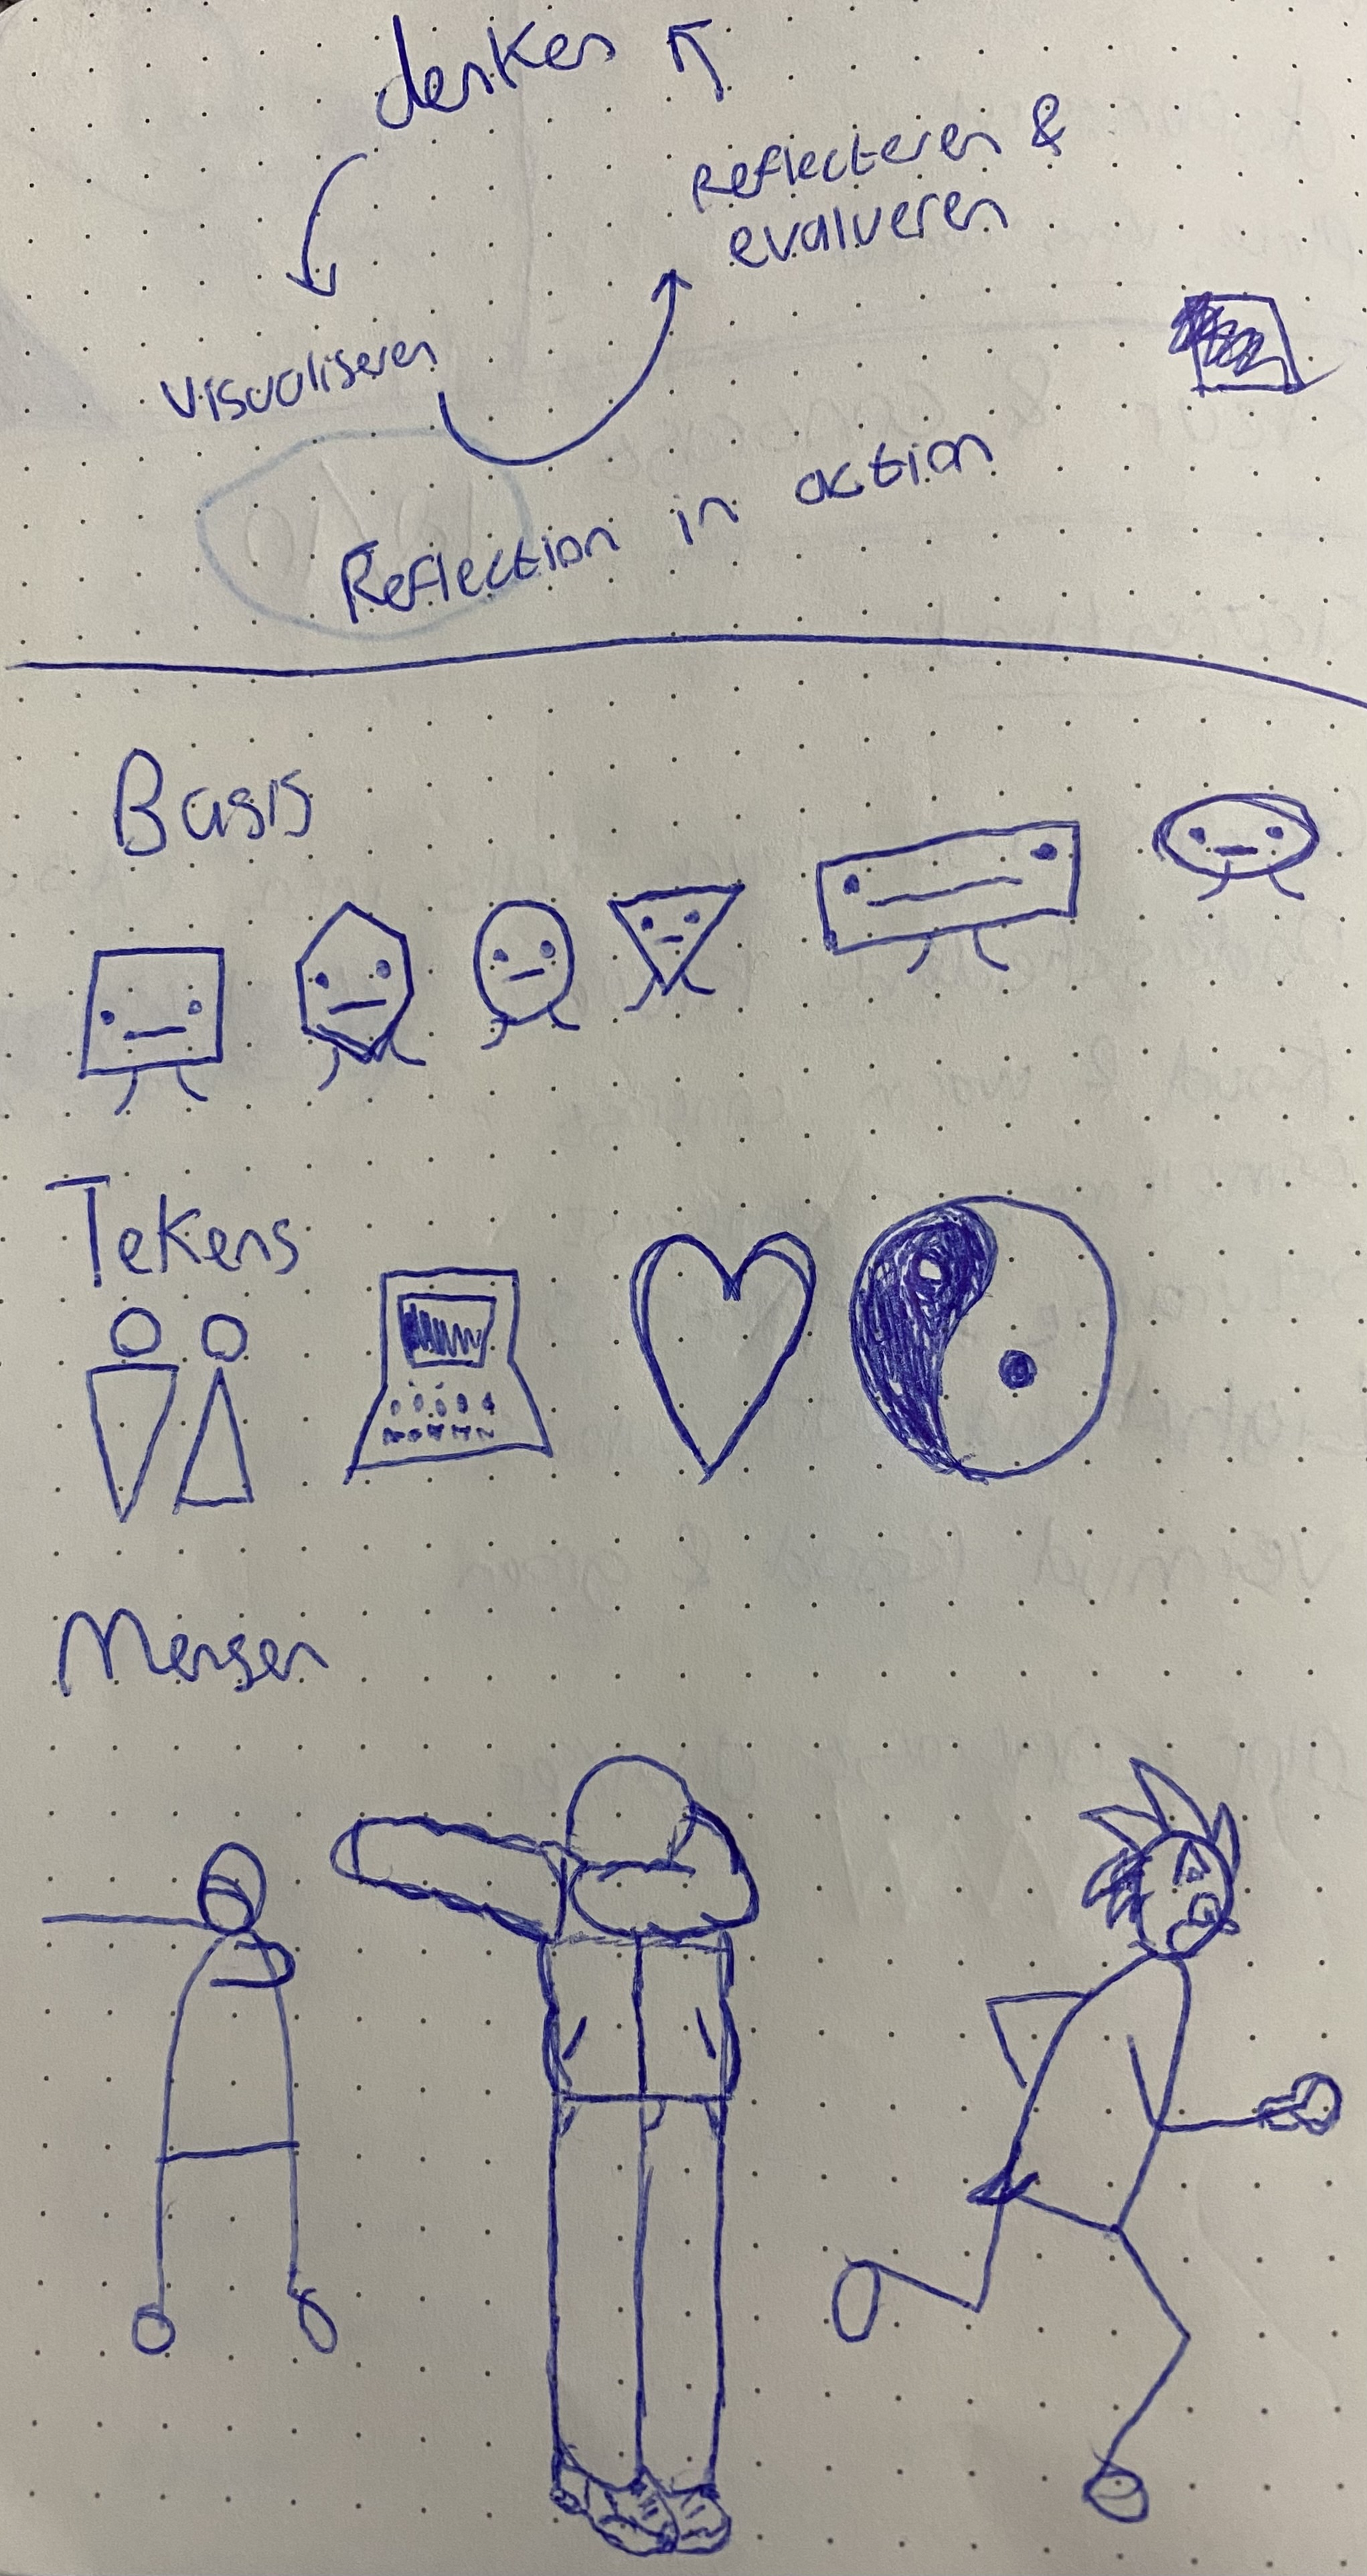 denken
Reflecteren &
evalueren
visualiseren
Reflection in action
Basis
Tekens
Mensen